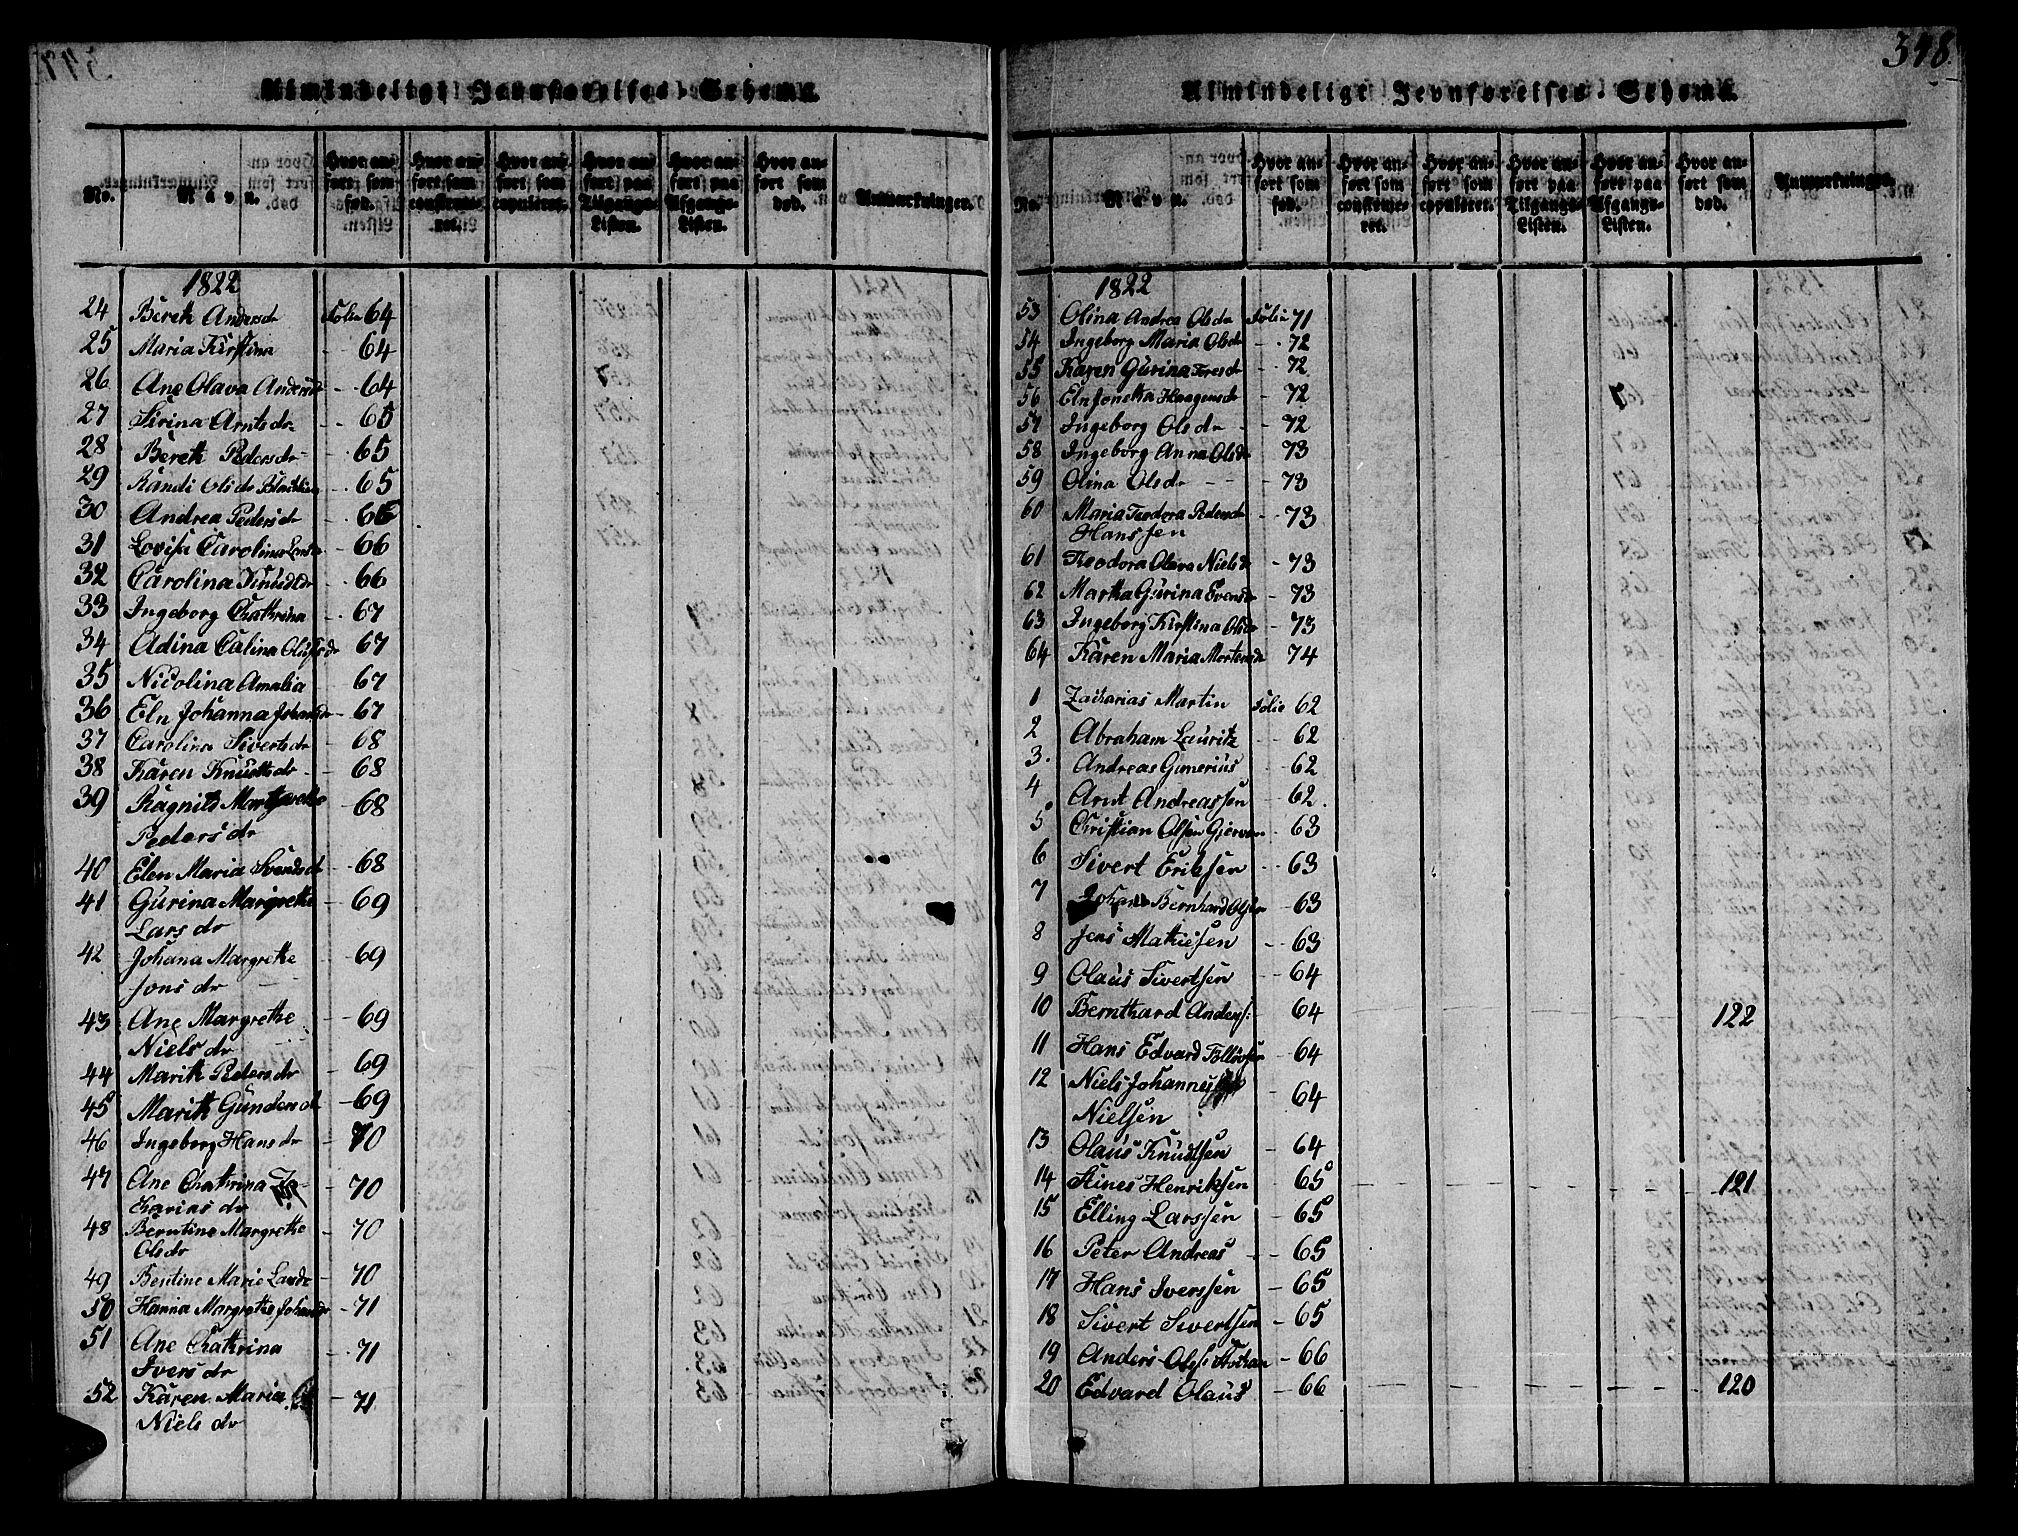 348.
Almindeligt Jevnførelses-Schema.
No.
Navn.
Hvor anført som fød.
Hvor anført som confirmeret.
Hvor anført som copuleret.
Hvor anført paa Tilgangs-Listen.
Hvor anført paa Afgangs-Listen.
Hvor anført som død.
Anmærkninger.
1822
24 Bereth Andersdr Folio 64
25 Maria Kirstina - - 64
26 Ane Olava Andersdr - - 64
27 Sirina Arntsdr - - 65
28 Bereth Pedersdr - - 65
29 Randi Olsdr - - 65
30 Andrea Pedersdr - - 66
31 Lovisa Carolina Larsdr - 66
32 Carolina Knudtdr - 66
33 Ingeborg Chathrina - 67
34 Adina Calina - 67
35 Nicolina Amalia - 67
36 Eln Johanna - 67
37 Carolina Sivertsdr - 68
38 Karen Knudtsdr - - 68
39 Ragnild
Pedersdr - 68
40 Elen Maria Svendsdr - 68
41 Gurina Margrethe
Lars dr - 69
42 Johana Margrethe
Jons dr - 69
43 Ane Margrethe
Niels dr - 69
44 Marith Pedersdr - 69
45 Marith Gundersdr - 69
46 Ingeborg Hansdr - 70
47 Ane Chathrina Za-
karias dr - 70
48 Berntine Margrethe
Olsdr - 70
49 Bentine Marie - 70
50 Hanna Margrethe Johansdr - 71
51 Ane Chathrina
Ivers dr - 71
52 Karen Maria
Niels dr - 71
Almindeligt Jevnførelses-Schema.
No.
Navn.
Hvor anført som fød.
Hvor anført som confirmeret.
Hvor anført som copuleret.
Hvor anført paa Tilgangs-Listen.
Hvor anført paa Afgangs-Listen.
Hvor anført som død.
Anmærkninger.
1822
53 Olina Andrea Olsdr Folio 71
54 Ingeborg Maria Olsdr - 72
55 Karen Gurina - 72
56 Haagensdr - 72
57 Ingeborg Olsdr - - 72
58 Ingeborg Anna Olsdr 73
59 Olina Olsdr - - - 73
60 Maria Teodora Pedersdr - 73
Hanssen
61 Theodora Olava Nielsdr - 73
62 Martha Gurina - 73
63 Ingeborg Kirstina Olsdr - 73
64 Karen Maria Mortensdr - 74
1 Zacharias Martin Folio 62
2 Abraham Lauritz - - 62
3. Andreas Gunerius - 62
4 Arnt Andreassen - 62.
5 Christian Olsen - 63
6 Sivert Eriksen - - 63
7 Johan Bernhard - 63
8 Jens Mathiesen - - 63
9 Olaus Sivertsen - - 64
10 Bernthard Anders: - 64 122
11 Hans Edvard - 64
12 Niels Johannes
Nielsen - 64
13 Olaus Knudtsen - 64
14 Stines Henriksen - 65 121
15 Elling Larssen - 65
16 Peter Andreas - - 65
17 Hans Iverssen - 65
18 Sivert Sivertsen - 65
19 Anders - 66
20 Edvard Olaus - 66 120